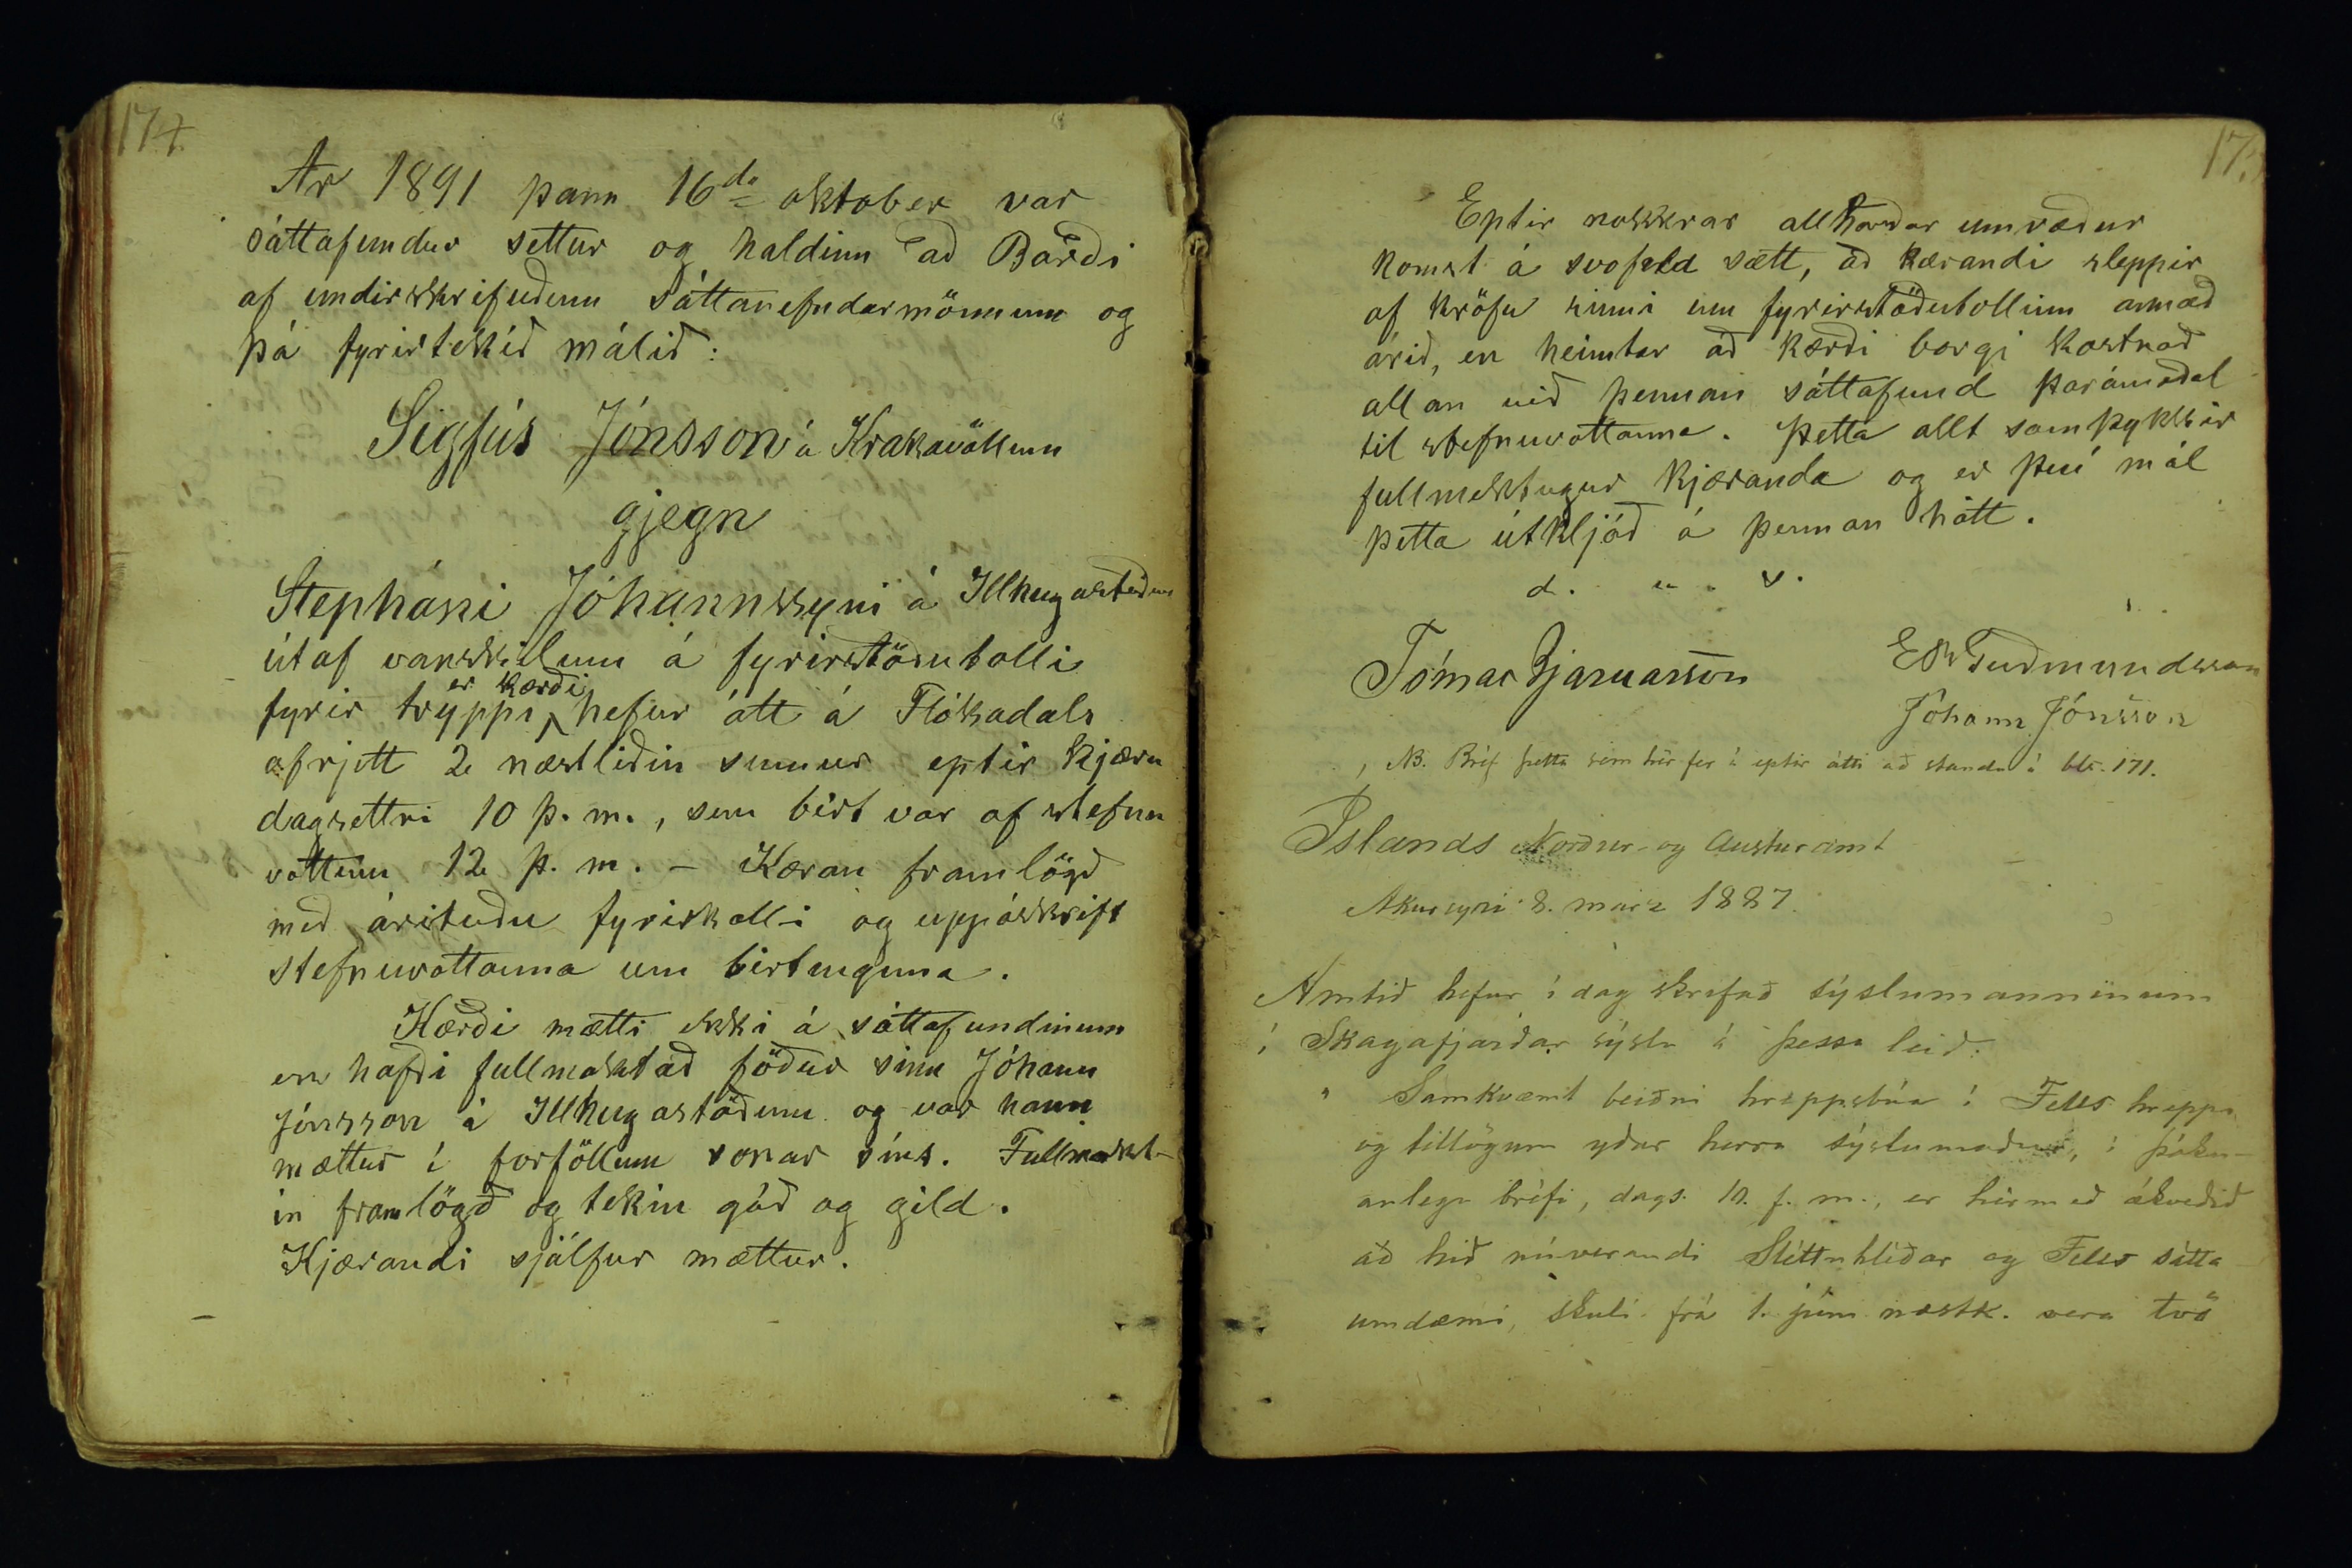 174
Ar 1891 þann 16da oktober var
sáttafundur settur og haldinn að Barði
af undirskrifuðum sáttanefndarmönnum og
þá fyrirtekið málið:
Sigfús Jónsson á Krakavöllum
gjegn
Stepháni Jóhannssyni á Illhugastöðum
útaf vanskilum á fyrirstöðutolli
fyrir tryppi er kærði hefur átt á Flókadals
afrjett 2 næstliðin sumur eptir kjæru
dagsettri 10 þ. m., sem birt var af stefnu
vottum 12 þ. m. – Kæran framlögð
með árituðu fyrirkalli og uppáskript
stefnuvottanna um birtinguna.
Kærði mætti ekki á sáttafundinum
en hafði fullmaktað föður sinn Jóhann
Jónsson á Illhugastöðum og var hann
mættur í forföllum sonar síns. Fullmakt-
in framlögð og tekin góð og gild.
Kjærandi sjálfur mættur.
17
Eptir nokkrar allharðar umræður
komst á svofeld sætt, að kærandi sleppir
af kröfu sinni um fyrirstöðutollinn annað
árið, en heimtar að kærði borgi kostnað
allan við þennan sáttafund þarámeðal
til stefnuvottanna. Þetta allt samþykkir
fullmektugur kjæranda og er því mál
þetta útkljáð á þennan hátt.
d. u. s.
Tómas Bjarnarson
E Guðmundsson
Jóhann Jónsson
NB. Bréf þetta sem hér fer á eptir átti að standa á bls. 171.
Islands Norður- og Austuramt
Akureyri 8. marz 1887.
Amtið hefur í dag skrifað sýslumanninum
í Skagafjarðar sýslu á þessa leið:
" Samkvæmt beiðni hreppsbúa í Fells hreppi
og tillögum yðar herra sýslumaður, í þókn-
anlegu bréfi, dags. 10. f. m., er hérmeð ákveðið
að hið núverandi Sléttuhlíðar og Fells sátta
umdæmi, skuli frá 1. júní næstk. vera tvö